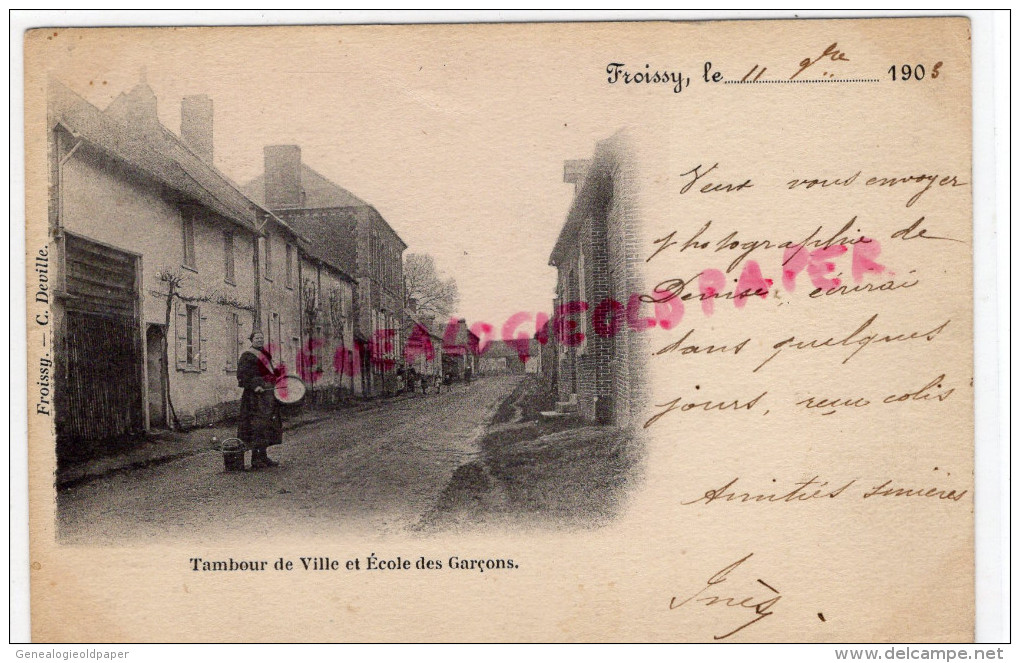 Froissy, le 11 9bre 1903
Veux vous envoyer
photographie de
Denise, écrirai
dans quelques
jours, reçu colis
Amitiés sincères
Inès.
GENEALOGIEOLDPAPER
Froissy. — C. Deville.
Tambour de Ville et École des Garçons.
Genealogieoldpaper
www.delcampe.net